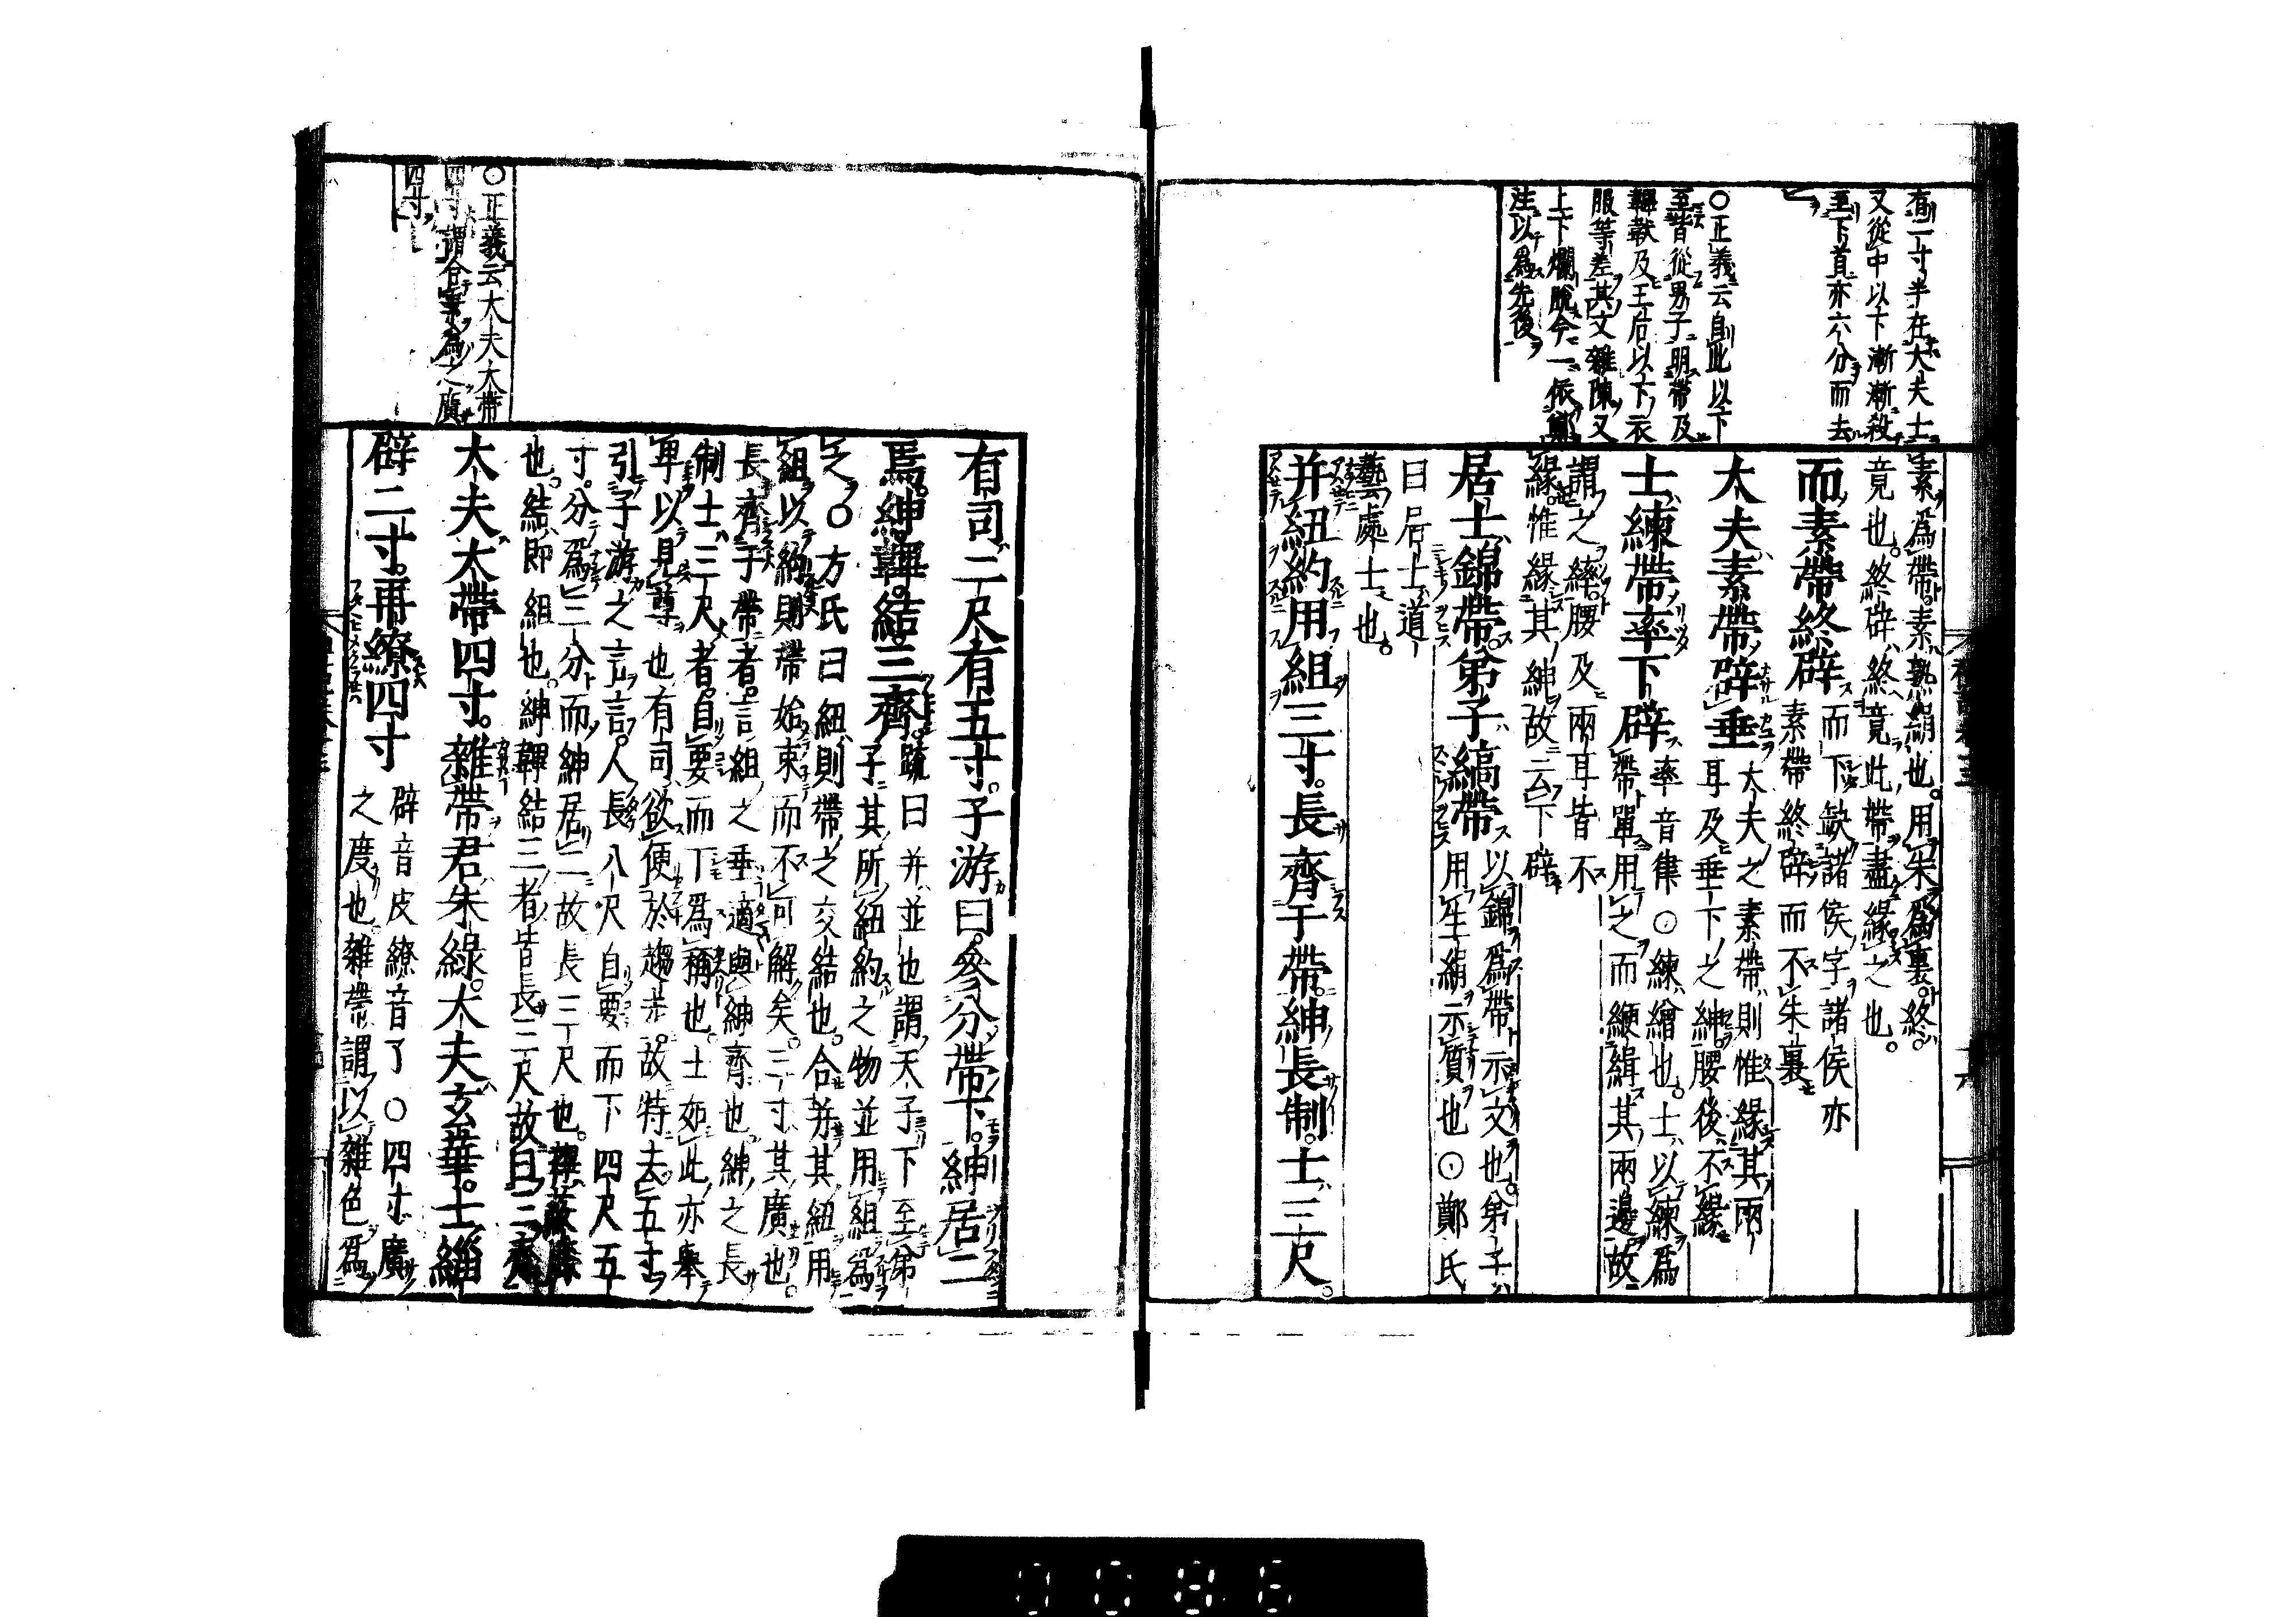 有二寸半在大夫士
又從中以下漸漸殺
至下首亦六分而去
之
○正義云自此以下
至皆從男子明帶及
韠韍及王后以下衣
服等差其文雜陳又
上下爛脫今一依鄭
注以爲先後
素爲帶素熟絹也。用朱爲裏。終。
竟也。終辟終竟此帶盡緣之也。
而素帶終辟而下缺諸侯字諸侯亦
素帶終辟而不朱裏
大夫素帶辟垂大夫之素帶則惟緣其兩
耳及垂下之紳腰後不緣
士練帶率下辟率音律○練繒也。士以練爲
帶單用之而緶緝其兩邊故
謂之繂。腰及兩耳皆不
緣。惟緣其紳故云下辟
居士錦帶。弟子縞帶以錦爲帶示文也。弟子
用生絹示質也○鄭氏
曰居士道
藝處士也。
并紐約用組三寸。長齊于帶。紳長制。士三尺。
有司二尺有五寸。子游曰。參分帶下。紳居二
焉。紳韠。結三齊。疏曰并並也謂天子下至弟
子其所紐約之物並用組爲
之。○方氏曰紐則帶之交結也。合并其紐用
組以約則帶始束而不可解矣。三寸其廣也。
長齊于帶者。言組之垂適與紳齊也。紳之長
制士三尺者。自要而下爲稱也。士如此亦舉
卑以見尊也有司欲便於趨走。故特去五寸
引子游之言言。人長八尺自要而下四尺五
寸。分爲三分而紳居二故長三尺也。韠蔽膝
也。結即組也。紳韠結三者皆長三尺故曰三齊
大夫大帶四寸。雜帶君朱綠。大夫玄華。士緇
辟二寸。再繚四寸辟音皮繚音了○四寸廣
之度也。雜帶謂以雜色爲
○正義云大夫大帶
四寸謂合素爲之廣
四寸